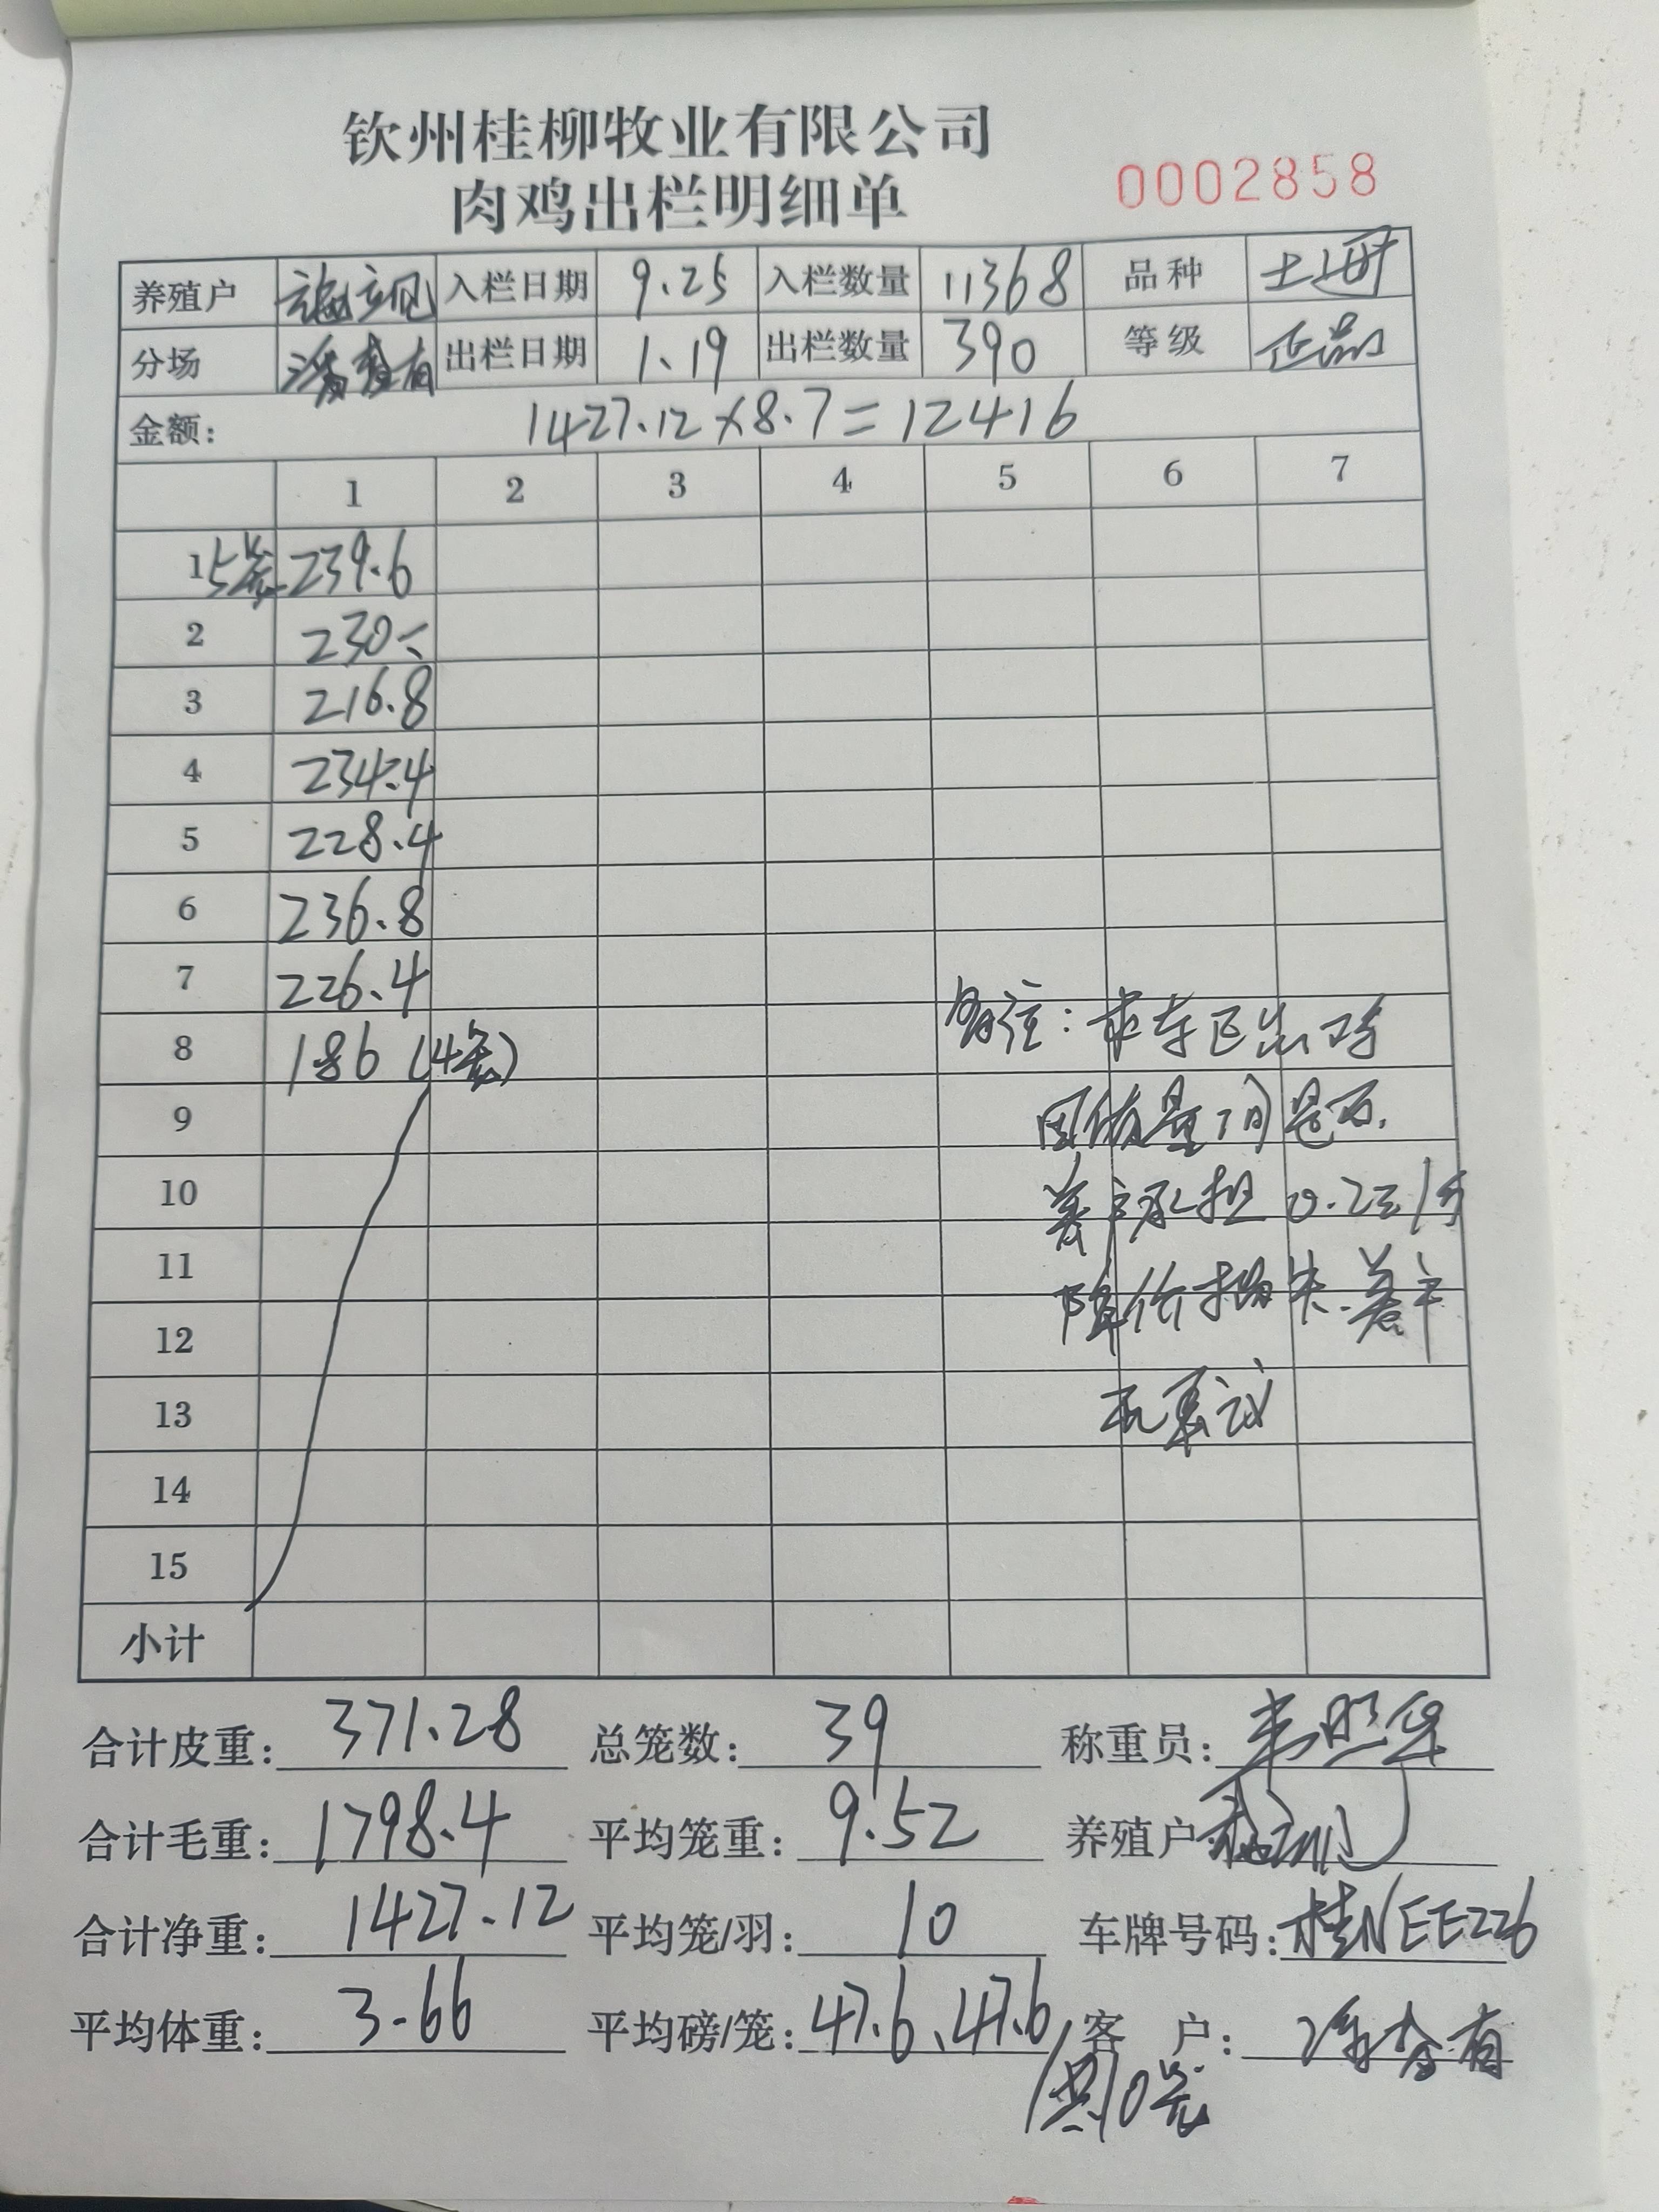 钦州桂柳牧业有限公司
肉鸡出栏明细单
0002858
养殖户 入栏日期 9.25 入栏数量 11368 品种 土
分场 出栏日期 1.19 出栏数量 390 等级 正品
金额: 1427.12×8.7=12416
1 2 3 4 5 6 7
1 5笼 239.6
2 230
3 216.8
4 234.4
5 228.4
6 236.8
7 226.4
8 186 (4笼)
备注:
9
10 养户承担0.2元/斤
11
12 降价损失.养户
13 无异议
14
15
小计
合计皮重: 371.28 总笼数: 39 称重员:
合计毛重: 1798.4 平均笼重: 9.52 养殖户
合计净重: 1427.12 平均笼/羽: 10 车牌号码: 桂NEE226
平均体重: 3.66 平均磅/笼: 47.6、47.6 客 户:
10笼